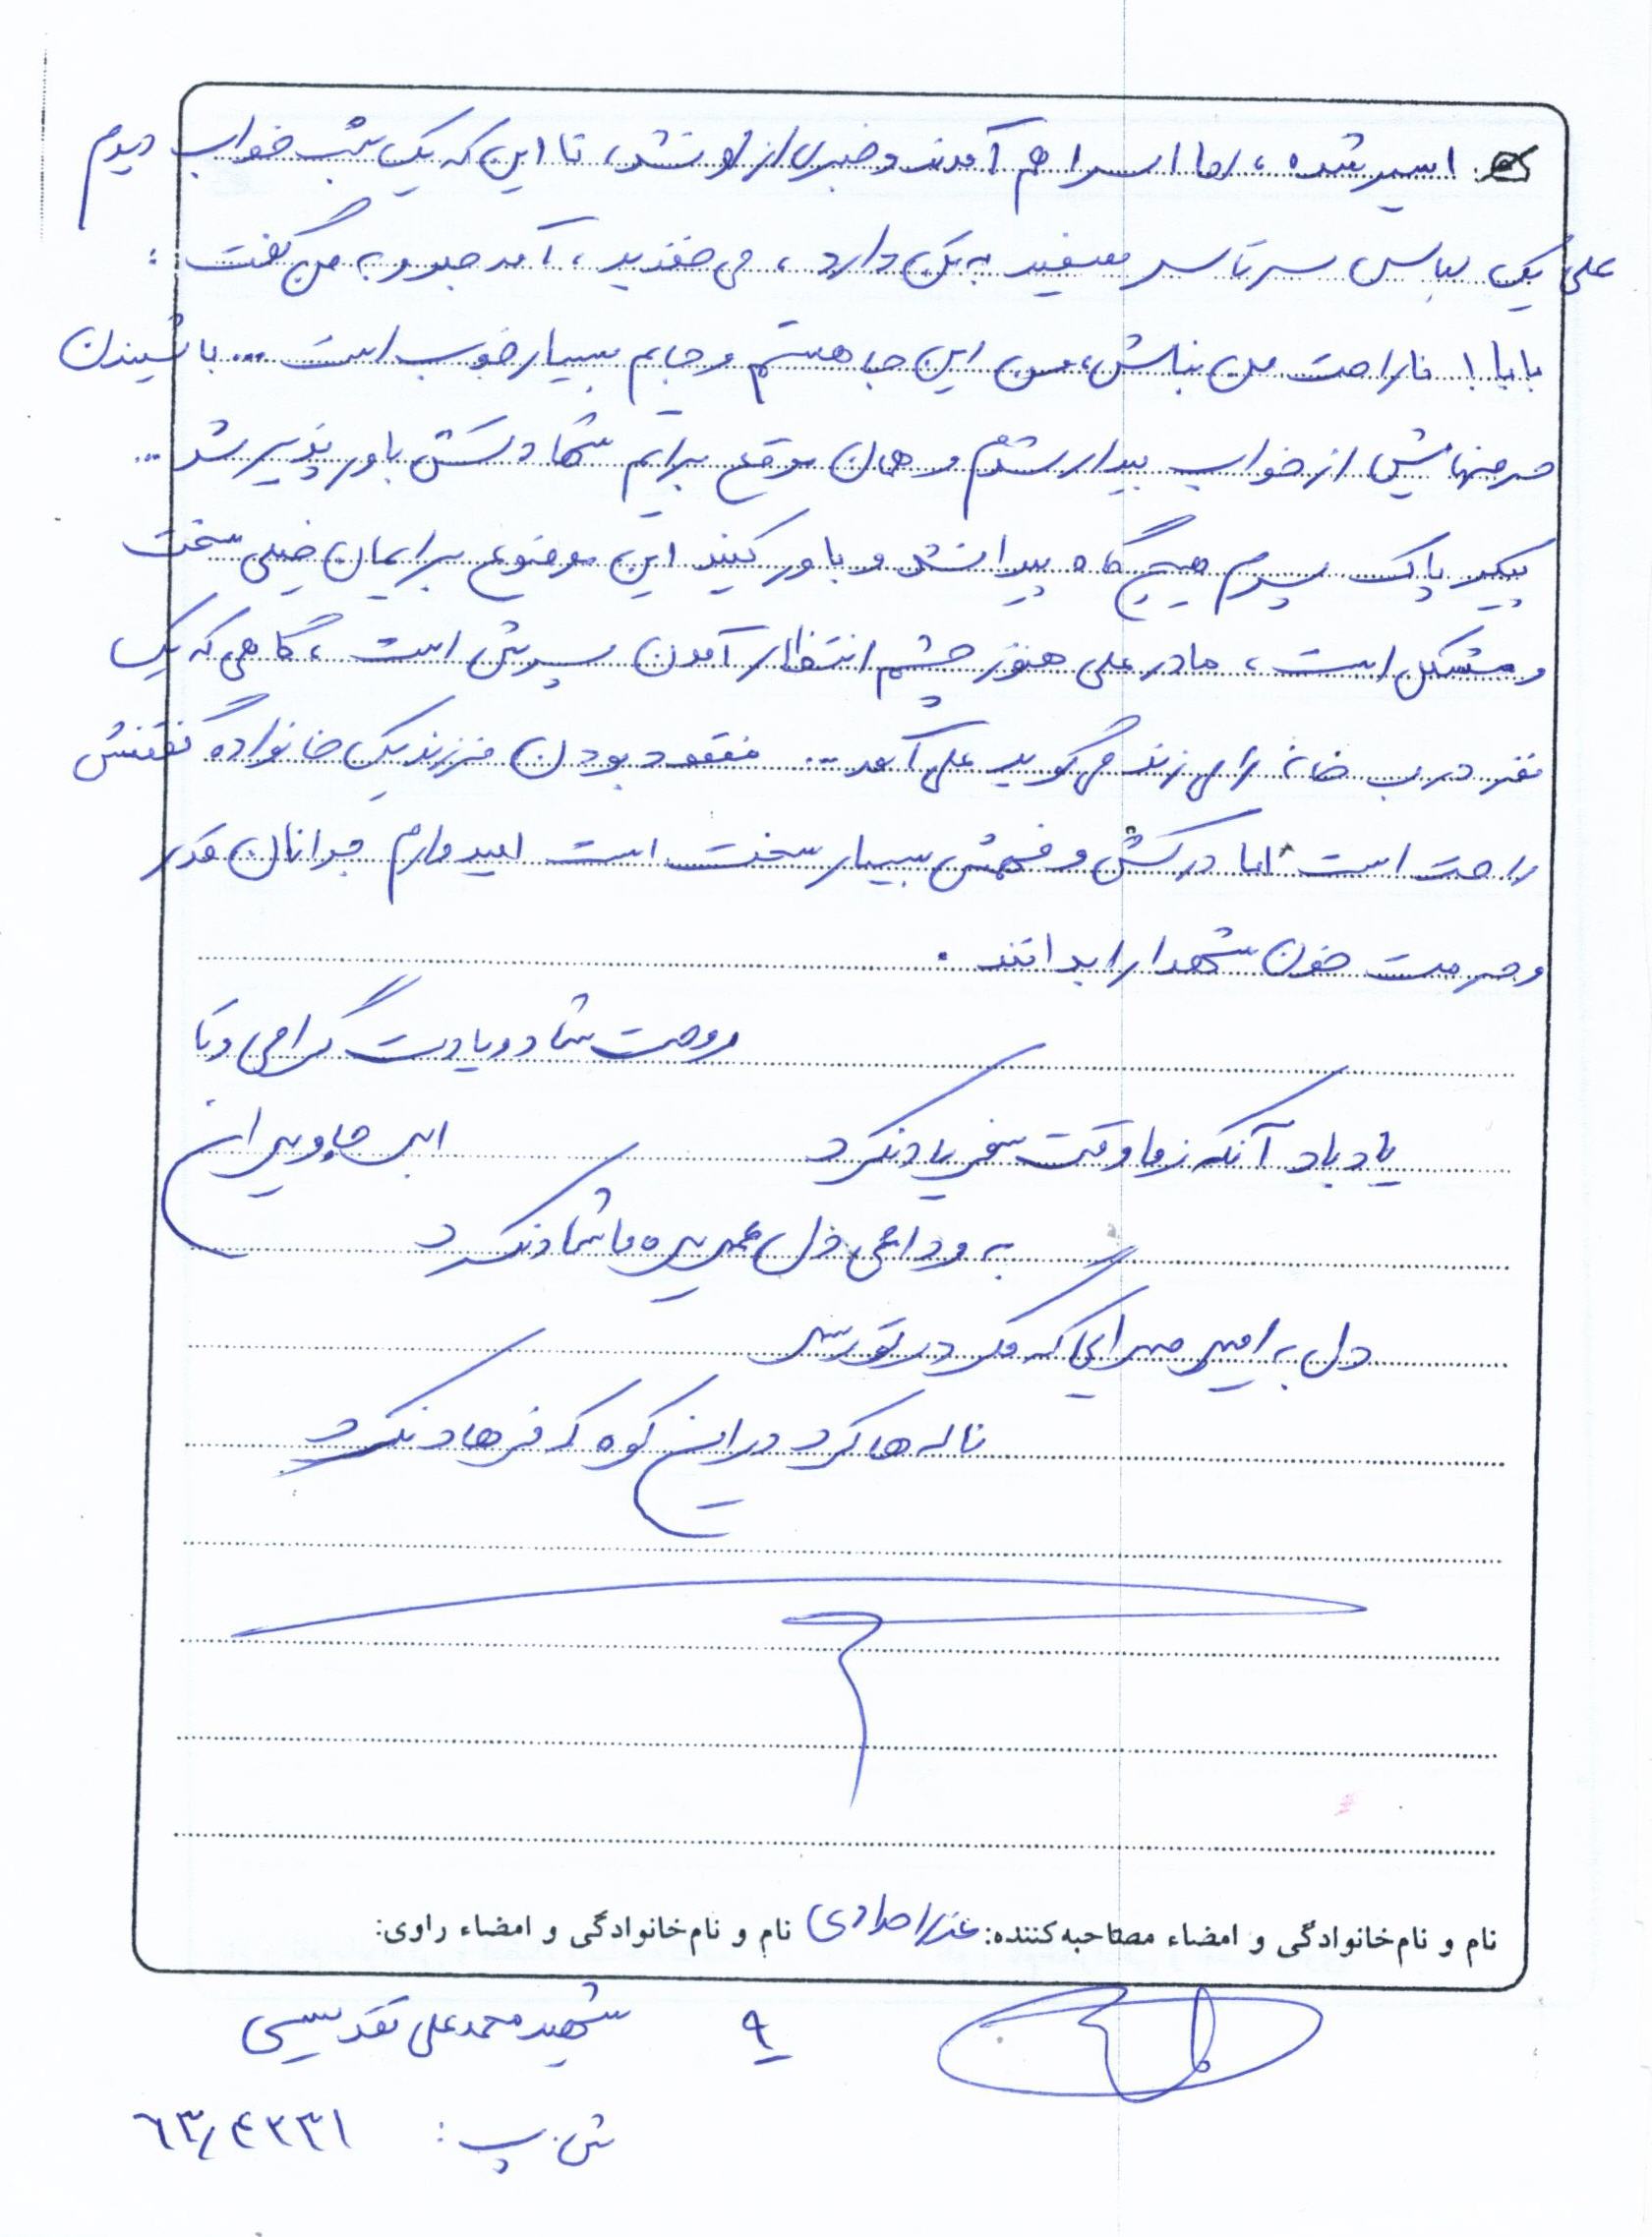 اسیر شده، اما اسرا هم آمدند و خبری از او نشد، تا این که یک شب خواب دیدم
علی یک لباس سرتاسر سفید به تن دارد، می خندید، آمد جلو و به من گفت:
بابا! ناراحت من نباش، من این جا هستم و جایم بسیار خوب است... با شنیدن
حرفهایش از خواب بیدار شدم و همان موقع برایم شهادتش باور پذیر شد...
پیکر پاک پسرم هیچ گاه پیدا نشد و باور کنید این موضوع برایمان خیلی سخت
و مشکل است، مادر علی هنوز چشم انتظار آمدن پسرش است، گاهی که یک
نفر درب خانه را می زند می گوید علی آمد... مفقود بودن فرزند یک خانواده گفتنش
راحت است اما درکش و فهمش بسیار سخت است امیدوارم جوانان قدر
و حرمت خون شهدا را بدانند.
روحت شاد و یادت گرامی و تا
ابد جاویدان
یاد باد آنکه ز ما وقت سفر یاد نکرد
به وداعی دل غمدیده ما شاد نکرد
دل به امید صدایی که مگر در تو رسد
ناله ها کرد در این کوه که فرهاد نکرد
نام و نام خانوادگی و امضاء مصاحبه کننده: عذرا مرادی نام و نام خانوادگی و امضاء راوی:
۹
شهید محمد علی تقدیسی
ش. پ: ۶۳/۴۲۳۱